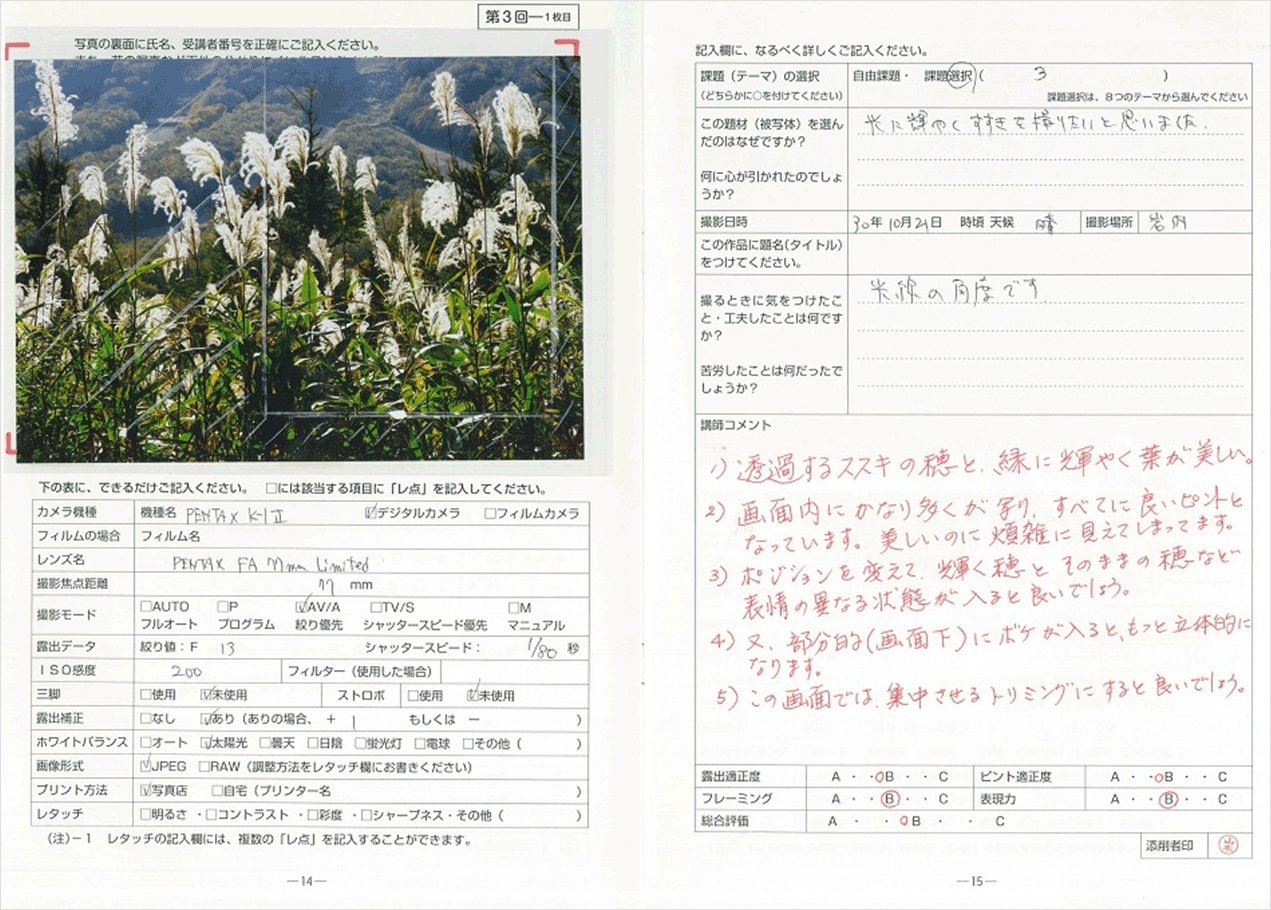 第3回―1枚目
写真の裏面に氏名、受講者番号を正確にご記入ください。
下の表に、できるだけご記入ください。 □には該当する項目に「レ点」を記入してください。
カメラ機種 機種名 PENTAX K-1 II ☑デジタルカメラ □フィルムカメラ
フィルムの場合 フィルム名
レンズ名 PENTAX FA 77mm Limited
撮影焦点距離 77 mm
撮影モード □AUTO □P ☑AV/A □TV/S □M
フルオート プログラム 絞り優先 シャッタースピード優先 マニュアル
露出データ 絞り値：F 13 シャッタースピード： 1/80 秒
ISO感度 200 フィルター（使用した場合）
三脚 □使用 ☑未使用 ストロボ □使用 ☑未使用
露出補正 □なし ☑あり（ありの場合、 ＋ 1 もしくは － ）
ホワイトバランス □オート ☑太陽光 □曇天 □日陰 □蛍光灯 □電球 □その他（ ）
画像形式 ☑JPEG □RAW（調整方法をレタッチ欄にお書きください）
プリント方法 ☑写真店 □自宅（プリンター名 ）
レタッチ □明るさ ・□コントラスト ・□彩度 ・□シャープネス・その他（ ）
（注）－1 レタッチの記入欄には、複数の「レ点」を記入することができます。
―14―
記入欄に、なるべく詳しくご記入ください。
課題（テーマ）の選択 自由課題・ 課題選択（ 3 ）
（どちらかに○を付けてください） 課題選択は、8つのテーマから選んでください
この題材（被写体）を選ん 光に輝やくすすきを撮りたいと思いました.
だのはなぜですか？
何に心が引かれたのでしょ
うか？
撮影日時 30年10月21日 時頃 天候 晴 撮影場所 岩内
この作品に題名（タイトル）
をつけてください。
光線の角度です
撮るときに気をつけたこ
と・工夫したことは何です
か？
苦労したことは何だったで
しょうか？
講師コメント
1) 透過するススキの穂と、緑に輝やく葉が美しい。
2) 画面内にかなり多くが写り、すべてに良いピントと
なっています。美しいのに煩雑に見えてしまってます。
3) ポジションを変えて、輝く穂と そのままの穂など
表情の異なる状態が入ると良いでしょう。
4) 又、部分的(画面下)にボケが入ると、もっと立体的に
なります。
5) この画面では、集中させるトリミングにすると良いでしょう。
露出適正度 A・・○B・・C ピント適正度 A・・○B・・C
フレーミング A・・Ⓑ・・C 表現力 A・・Ⓑ・・C
総合評価 A・・○B・・C
添削者印
―15―